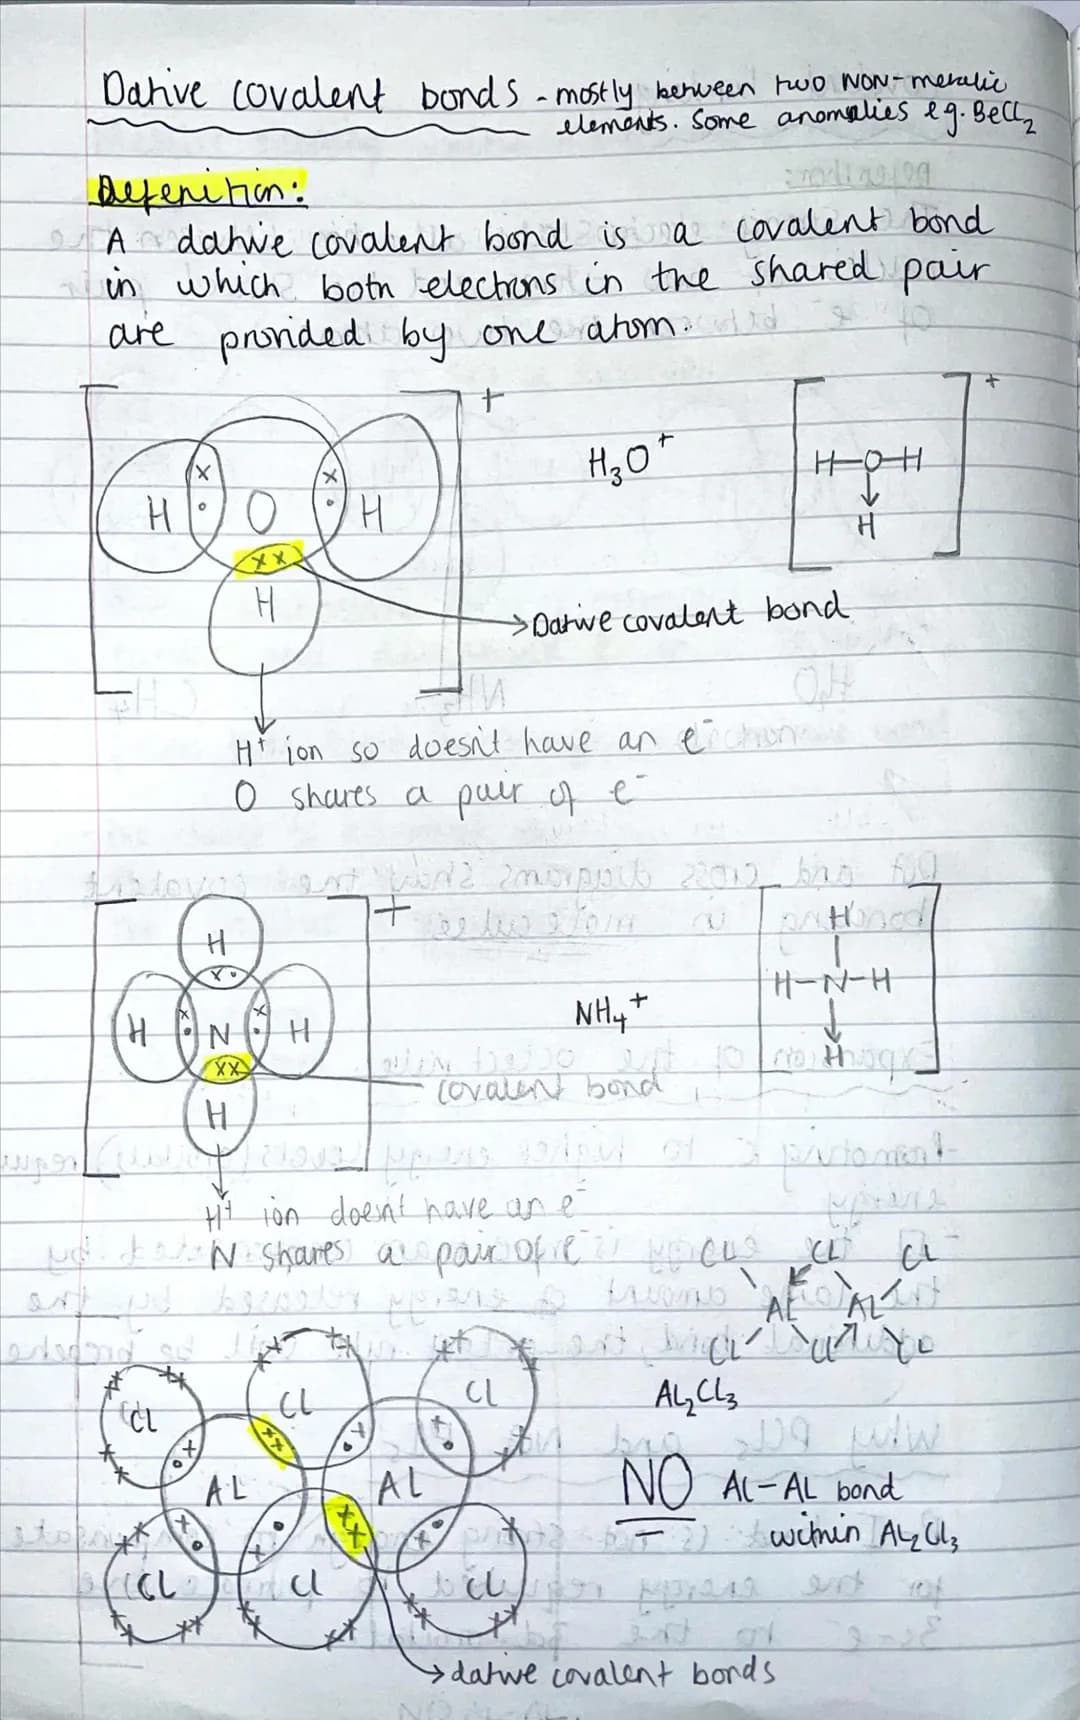 Dative covalent bonds - mostly between two NON-metallic
elements. Some anomalies eg. BeCl2
Defenition:
A dative covalent bond is a covalent bond
in which both electrons in the shared pair
are provided by one atom.
+
H O H
H
H3O+
+
H-O-H
H
Dative covalent bond
H+ ion so doesn't have an e-
O shares a pair of e-
+
H
H N H
H
NH4+
H
H-N-H
H
covalent bond
H+ ion doesn't have an e-
N shares a pair of e-
Cl Cl Cl
Al Al
Cl Cl Cl
Cl Cl Cl
AL AL
Cl Cl Cl
AL2Cl3
NO Al-AL bond
within AL2Cl3
dative covalent bonds